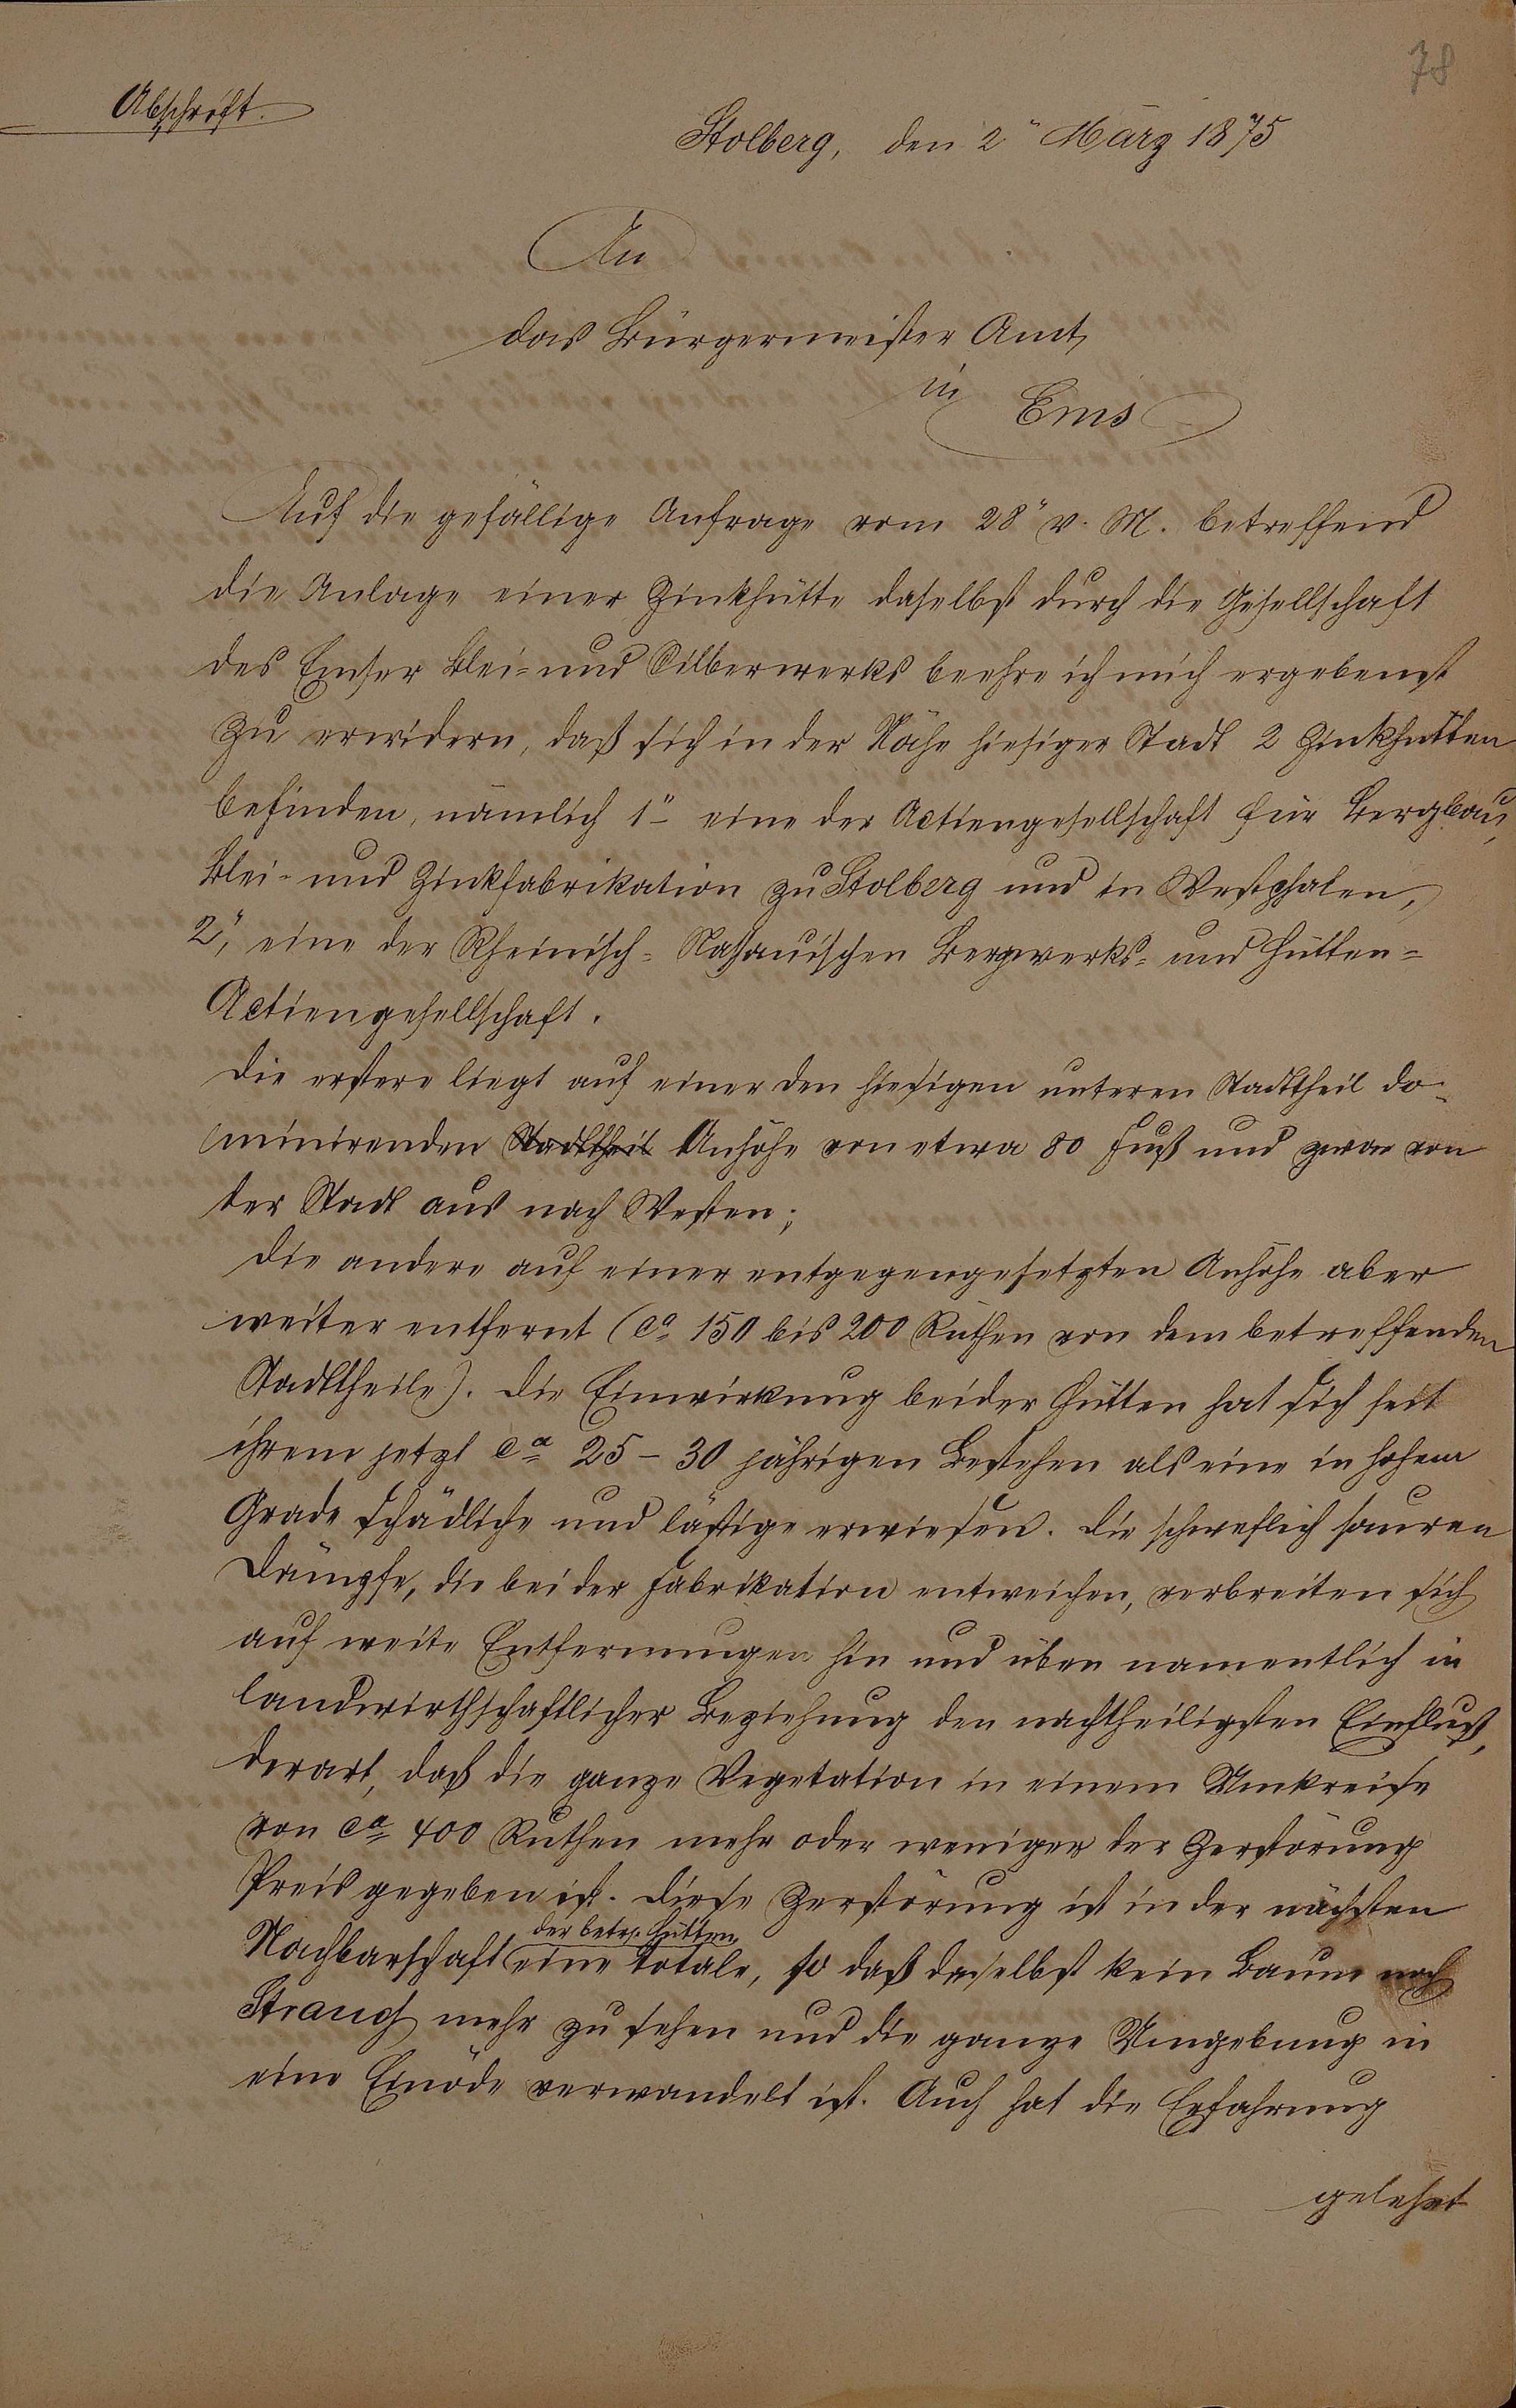 78
Abschrift.
Stolberg, den 2" März 1875
An
das Bürgermeister Amt
in
Ems
Auf die gefällige Anfrage vom 28" v. M. betreffend
die Anlage einer Zinkhütte daselbst durch die Gesellschaft
des Emser Blei- und Silberwerks beehre ich mich ergebenst
zu erwidern, daß sich in der Nähe hiesiger Stadt 2 Zinkhütten
befinden, nämlich 1" eine der Actiengesellschaft für Bergbau,
Blei- und Zinkfabrikation zu Stolberg und in Westphalen,
2", eine der Rheinisch-Nassauischen Bergwerks- und Hütten-
Actiengesellschaft.
Die erstere liegt auf einer den hiesigen unteren Stadttheil do-
minirenden Stadttheil Anhöhe von etwa 80 Fuß und zwar von
der Stadt aus nach Westen;
die andere auf einer entgegengesetzten Anhöhe aber
weiter entfernt (ca 150 bis 200 Ruthen von dem betreffenden
Stadttheile). Die Einwirkung beider Hütten hat sich seit
ihrem jetzt ca 25-30 jährigen Bestehen als eine in hohem
Grade schädliche und lästige erwiesen. Die schweflich sauren
Dämpfe, die bei der Fabrikation entweichen, verbreiten sich
auf weite Entfernungen hin und üben namentlich in
landwirthschaftlicher Beziehung den nachtheiligsten Einfluß,
derart, daß die ganze Vegetation in einem Umkreise
von ca 400 Ruthen mehr oder weniger der Zerstörung
Preis gegeben ist. Diese Zerstörung ist in der nächsten
der betr. Hütten
Nachbarschaft eine totale, so daß daselbst kein Baum noch
Strauch mehr zu sehen und die ganze Umgebung in
eine Einöde verwandelt ist. Auch hat die Erfahrung
gelehrt